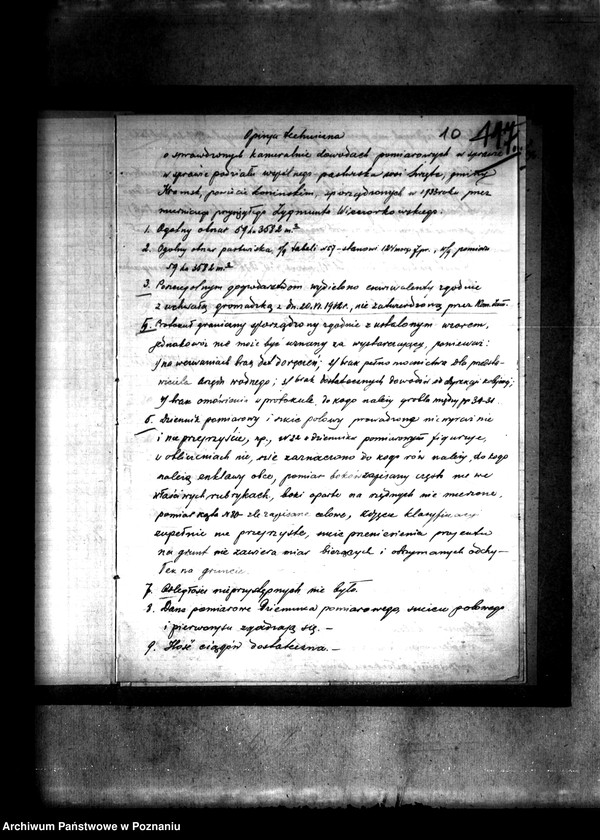 10 447
Opinja techniczna
o sprawdzonych kameralnie dowodach pomiarowych w sprawie
w sprawie podziału wspólnego pastwiska wsi Święte, gminy
powiecie Konińskim, sporządzonych w 1933 roku przez
mierniczego przysięgłego Zygmunta Wieczorkowskiego.
1. Ogólny obszar 59 ha 3582 m²
2. Ogólny obszar pastwiska, tabeli stanowi pomiaru
59 ha 3582 m²
3. Poszczególnym gospodarstwom wydzielono ekwiwalenty zgodnie
z uchwałą gromadzką z dn. nie zatwierdzoną przez
4. Protokuł graniczny sporządzony zgodnie z ustalonym wzorem,
jednakowoż nie może być uznany za wystarczający, ponieważ:
1/ na wezwaniach brak dat doręczeń; 2/ brak pełnomocnictwa dla przedsta-
wiciela 3/ brak dostatecznych dowodów od dyrekcji kolejowej;
4/ brak omówienia w protokule, do kogo należy grobla między pp 34-31
6. Dziennik pomiarowy i szkic polowy prowadzone niewyraźnie
i nieprzejrzyście, np. w dzienniku pomiarowym figuruje,
w obliczeniach nie, nie zaznaczono do kogo rów należy, do kogo
należą enklawy obce, pomiar boków zapisany często nie we
właściwych rubrykach, boki oparte na rzędnych nie mierzone,
pomiar kąta źle zapisane celowe, klasyfikacji
zupełnie nie przejrzyste, szkic przeniesienia projektu
na grunt nie zawiera miar bieżących i otrzymanych odchy-
łek na gruncie.
7. Odległości nieprzystępnych nie było.
8. Dane pomiarowe Dziennika pomiarowego, szkicu polowego
i pierworysu zgadzają się. —
9. Ilość ciągów dostateczna. —
Archiwum Państwowe w Poznaniu